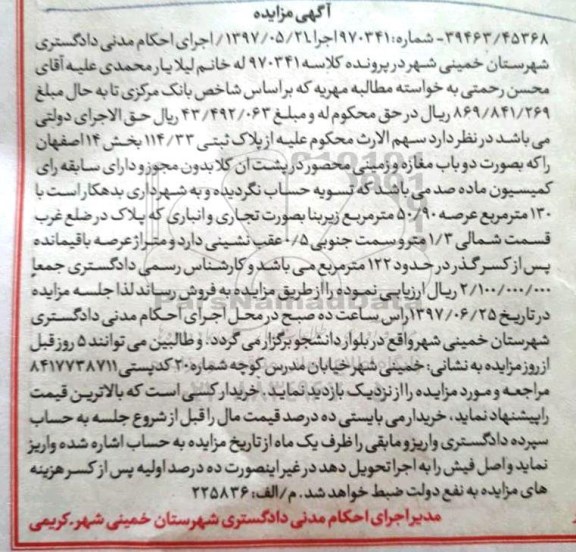 آگهی مزایده
۳۹۴۶۳/۴۵۳۶۸- شماره: ۹۷۰۳۴۱ اجرا ۱۳۹۷/۰۵/۲۱ اجرای احکام مدنی دادگستری
شهرستان خمینی شهر در پرونده کلاسه ۹۷۰۳۴۱ له خانم لیلا یار محمدی علیه آقای
محسن رحمتی به خواسته مطالبه مهریه که براساس شاخص بانک مرکزی تا به حال مبلغ
۸۶۹/۸۴۱/۲۶۹ ریال در حق محکوم له و مبلغ ۴۳/۴۹۲/۰۶۳ ریال حق الاجرای دولتی
می باشد در نظر دارد سهم الارث محکوم علیه از پلاک ثبتی ۱۱۴/۳۳ بخش ۱۴ اصفهان
را که بصورت دو باب مغازه و زمینی محصور در پشت آن کلا بدون مجوز و دارای سابقه رای
کمیسیون ماده صد می باشد که تسویه حساب نگردیده و به شهرداری بدهکار است با
۱۳۰ مترمربع عرصه ۵۰/۹۰ مترمربع زیربنا بصورت تجاری و انباری که پلاک در ضلع غرب
قسمت شمالی ۱/۳ متر و سمت جنوبی ۰/۵ عقب نشینی دارد و متراژ عرصه باقیمانده
پس از کسر گذر در حدود ۱۲۲ مترمربع می باشد و کارشناس رسمی دادگستری جمعا
۲/۱۰۰/۰۰۰/۰۰۰ ریال ارزیابی نموده را از طریق مزایده به فروش رساند لذا جلسه مزایده
در تاریخ ۱۳۹۷/۰۶/۲۵ راس ساعت ده صبح در محل اجرای احکام مدنی دادگستری
شهرستان خمینی شهر واقع در بلوار دانشجو برگزار می گردد، و طالبین می توانند ۵ روز قبل
از روز مزایده به نشانی: خمینی شهر خیابان مدرس کوچه شماره ۲۰ کدپستی ۸۴۱۷۷۳۸۷۱۱
مراجعه و مورد مزایده را از نزدیک بازدید نماید. خریدار کسی است که بالاترین قیمت
را پیشنهاد نماید، خریدار می بایستی ده درصد قیمت مال را قبل از شروع جلسه به حساب
سپرده دادگستری واریز و مابقی را ظرف یک ماه از تاریخ مزایده به حساب اشاره شده واریز
نماید و اصل فیش را به اجرا تحویل دهد در غیر اینصورت ده درصد اولیه پس از کسر هزینه
های مزایده به نفع دولت ضبط خواهد شد. م/الف: ۲۲۵۸۳۶
مدیر اجرای احکام مدنی دادگستری شهرستان خمینی شهر- کریمی
ParsNamadData